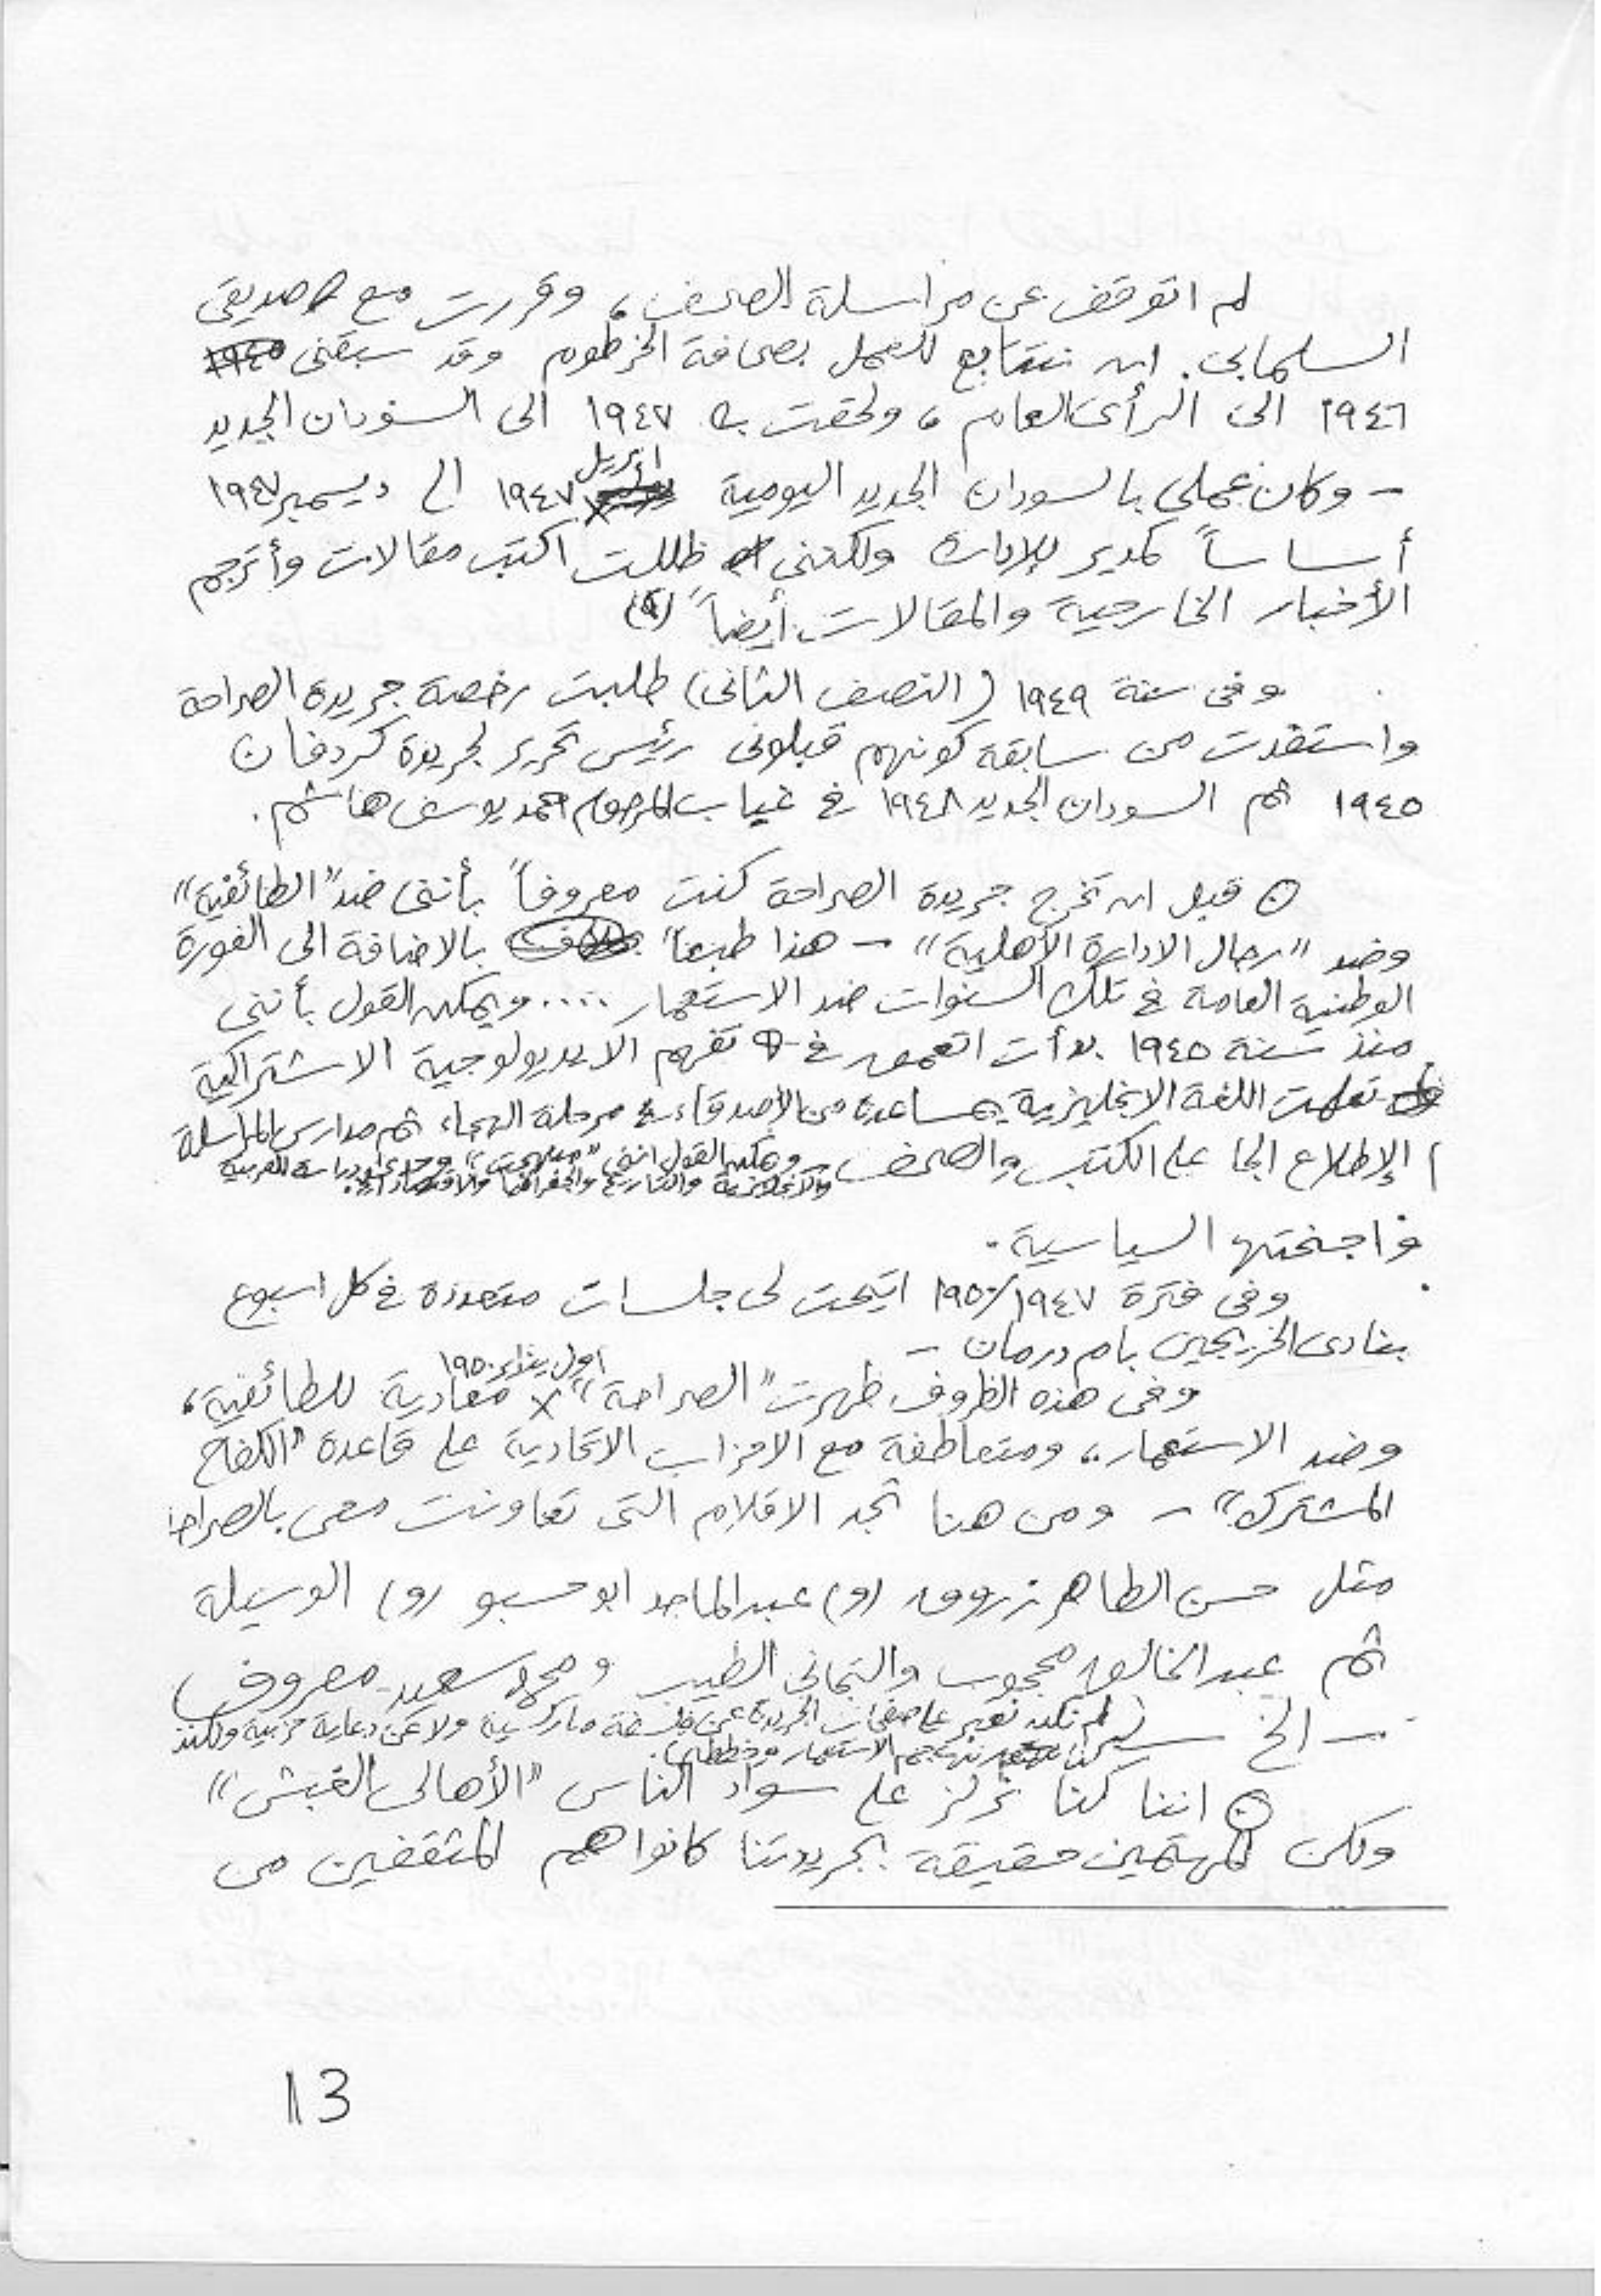 لم اتوقف عن مراسلة الصحف، وقررت مع صديقى
السلمابى ان نتتابع للعمل بصحافة الخرطوم وقد سبقنى
١٩٤٦ الى الرأى العام، ولحقت به ١٩٤٧ الى السودان الجديد
- وكان عملى بالسودان الجديد اليومية ابريل ١٩٤٧ الى ديسمبر ١٩٤٧
أساساً كمدير للإدارة ولكننى ظللت اكتب مقالات وأترجم
الأخبار الخارجية والمقالات أيضاً
وفى سنة ١٩٤٩ (النصف الثانى) طلبت رخصة جريدة الصراحة
واستفدت من سابقة كونهم قبلونى رئيس تحرير لجريدة كردفان
١٩٤٥ ثم السودان الجديد ١٩٤٨ فى غياب المرحوم احمد يوسف هاشم.
قبل ان تخرج جريدة الصراحة كنت معروفاً بأننى ضد "الطائفية"
وضد "رجال الادارة الأهلية" - هذا طبعاً بالاضافة الى الفورة
الوطنية العامة فى تلك السنوات ضد الاستعمار .... ويمكن القول بأننى
منذ سنة ١٩٤٥ بدأت اتعمق فى تفهم الايديولوجية الاشتراكية
تعلمت اللغة الانجليزية بمساعدة من الأصدقاء فى مرحلة الهجاء ثم مدارس المراسلة
الإطلاع على الكتب والصحف - ويمكن القول اننى دراسة العربية
والانجليزية والتاريخ والجغرافيا والاقتصاد
فى اجنحتها السياسية.
وفى فترة ١٩٤٧/١٩٥٠ اتيحت لى جلسات متعددة فى كل اسبوع
بنادى الخريجين بام درمان -
وفى هذه الظروف ظهرت "الصراحة" اول يناير ١٩٥٠ معادية للطائفية،
وضد الاستعمار،، ومتعاطفة مع الاحزاب الاتحادية على قاعدة "الكفاح
المشترك" - ومن هنا تجد الاقلام التى تعاونت معى بالصراحة
مثل حسن الطاهر زروق (و) عبدالماجد ابو حسبو (و) الوسيلة
ثم عبدالخالق محجوب والتجانى الطيب ومحمد سعيد معروف
- الخ لم نكن نعبر على صفحات الجريدة عن فلسفة ماركسية ولا عن دعاية حزبية ولكننا
كنا نهاجم الاستعمار وخططه.
اننا كنا نركز على سواد الناس "الأهالى الغبش"
ولكن المهتمين حقيقة بجريدتنا كانوا هم المثقفين من
13